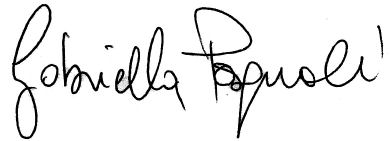 Gabriella Pagnoli